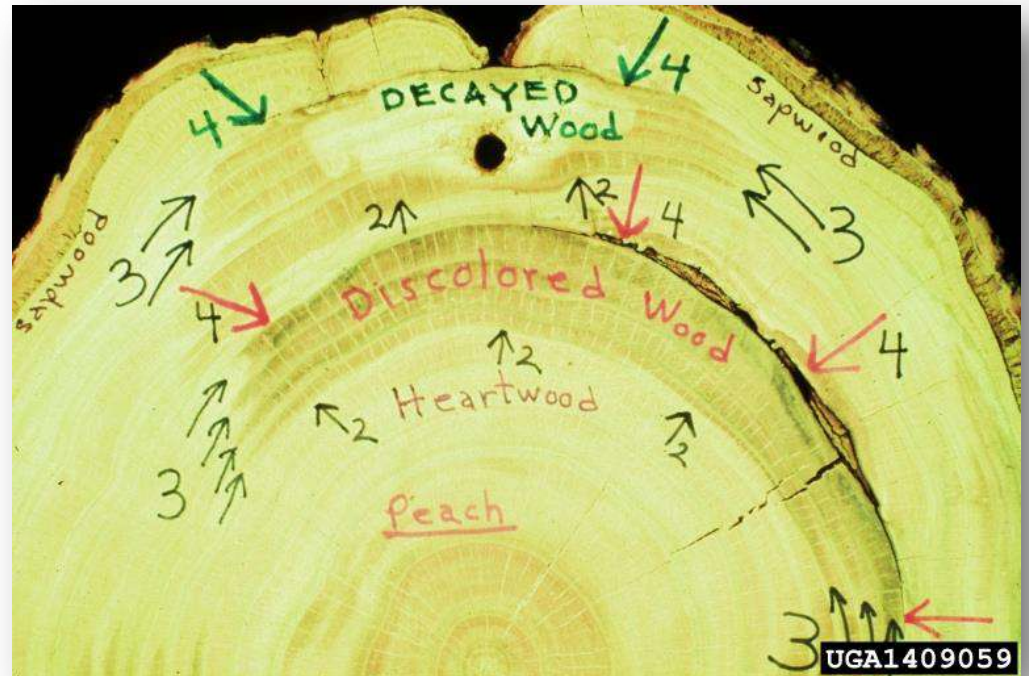 4
DECAYED
Wood
4
sapwood
2
2
4
3
3
sapwood
4
Discolored Wood
4
2
Heartwood
2
2
3
Peach
3
UGA1409059